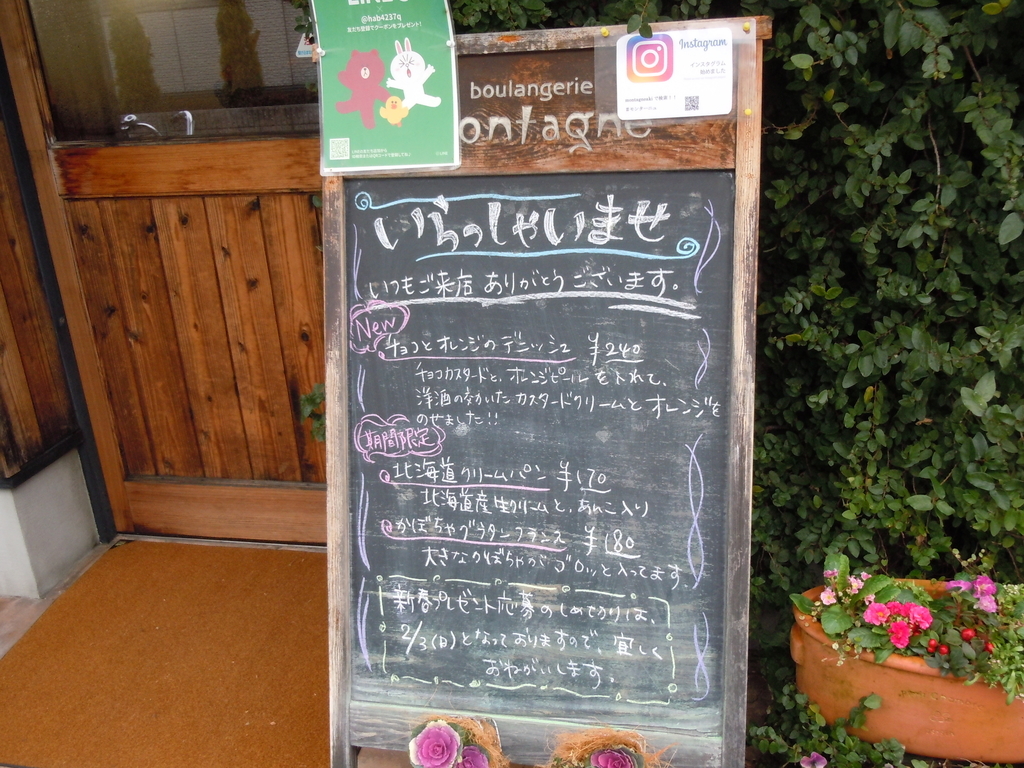 @hab4237q
友だち登録でクーポンをプレゼント!
Instagram
インスタグラム
始めました
boulangerie
ontagne
いらっしゃいませ
いつもご来店ありがとうございます。
New
チョコとオレンジのデニッシュ ¥240
チョコカスタードと、オレンジピールを入れて、
洋酒のきいたカスタードクリームとオレンジを
のせました!!
期間限定
北海道クリームパン ¥170
北海道産生クリームと、あんこ入り
かぼちゃグラタンフランス ¥180
大きなかぼちゃがゴロッと入ってます。
新春プレゼント応募のしめきりは、
2/3(日)となっておりますので、宜しく
おねがいします。